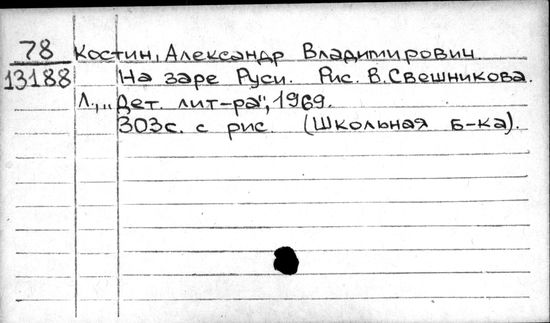 78 Костин, Александр Владимирович.
13188 На заре Руси. Рис. В. Свешникова.
Л., „Дет. лит-ра", 1969.
303с. с рис. (Школьная б-ка).